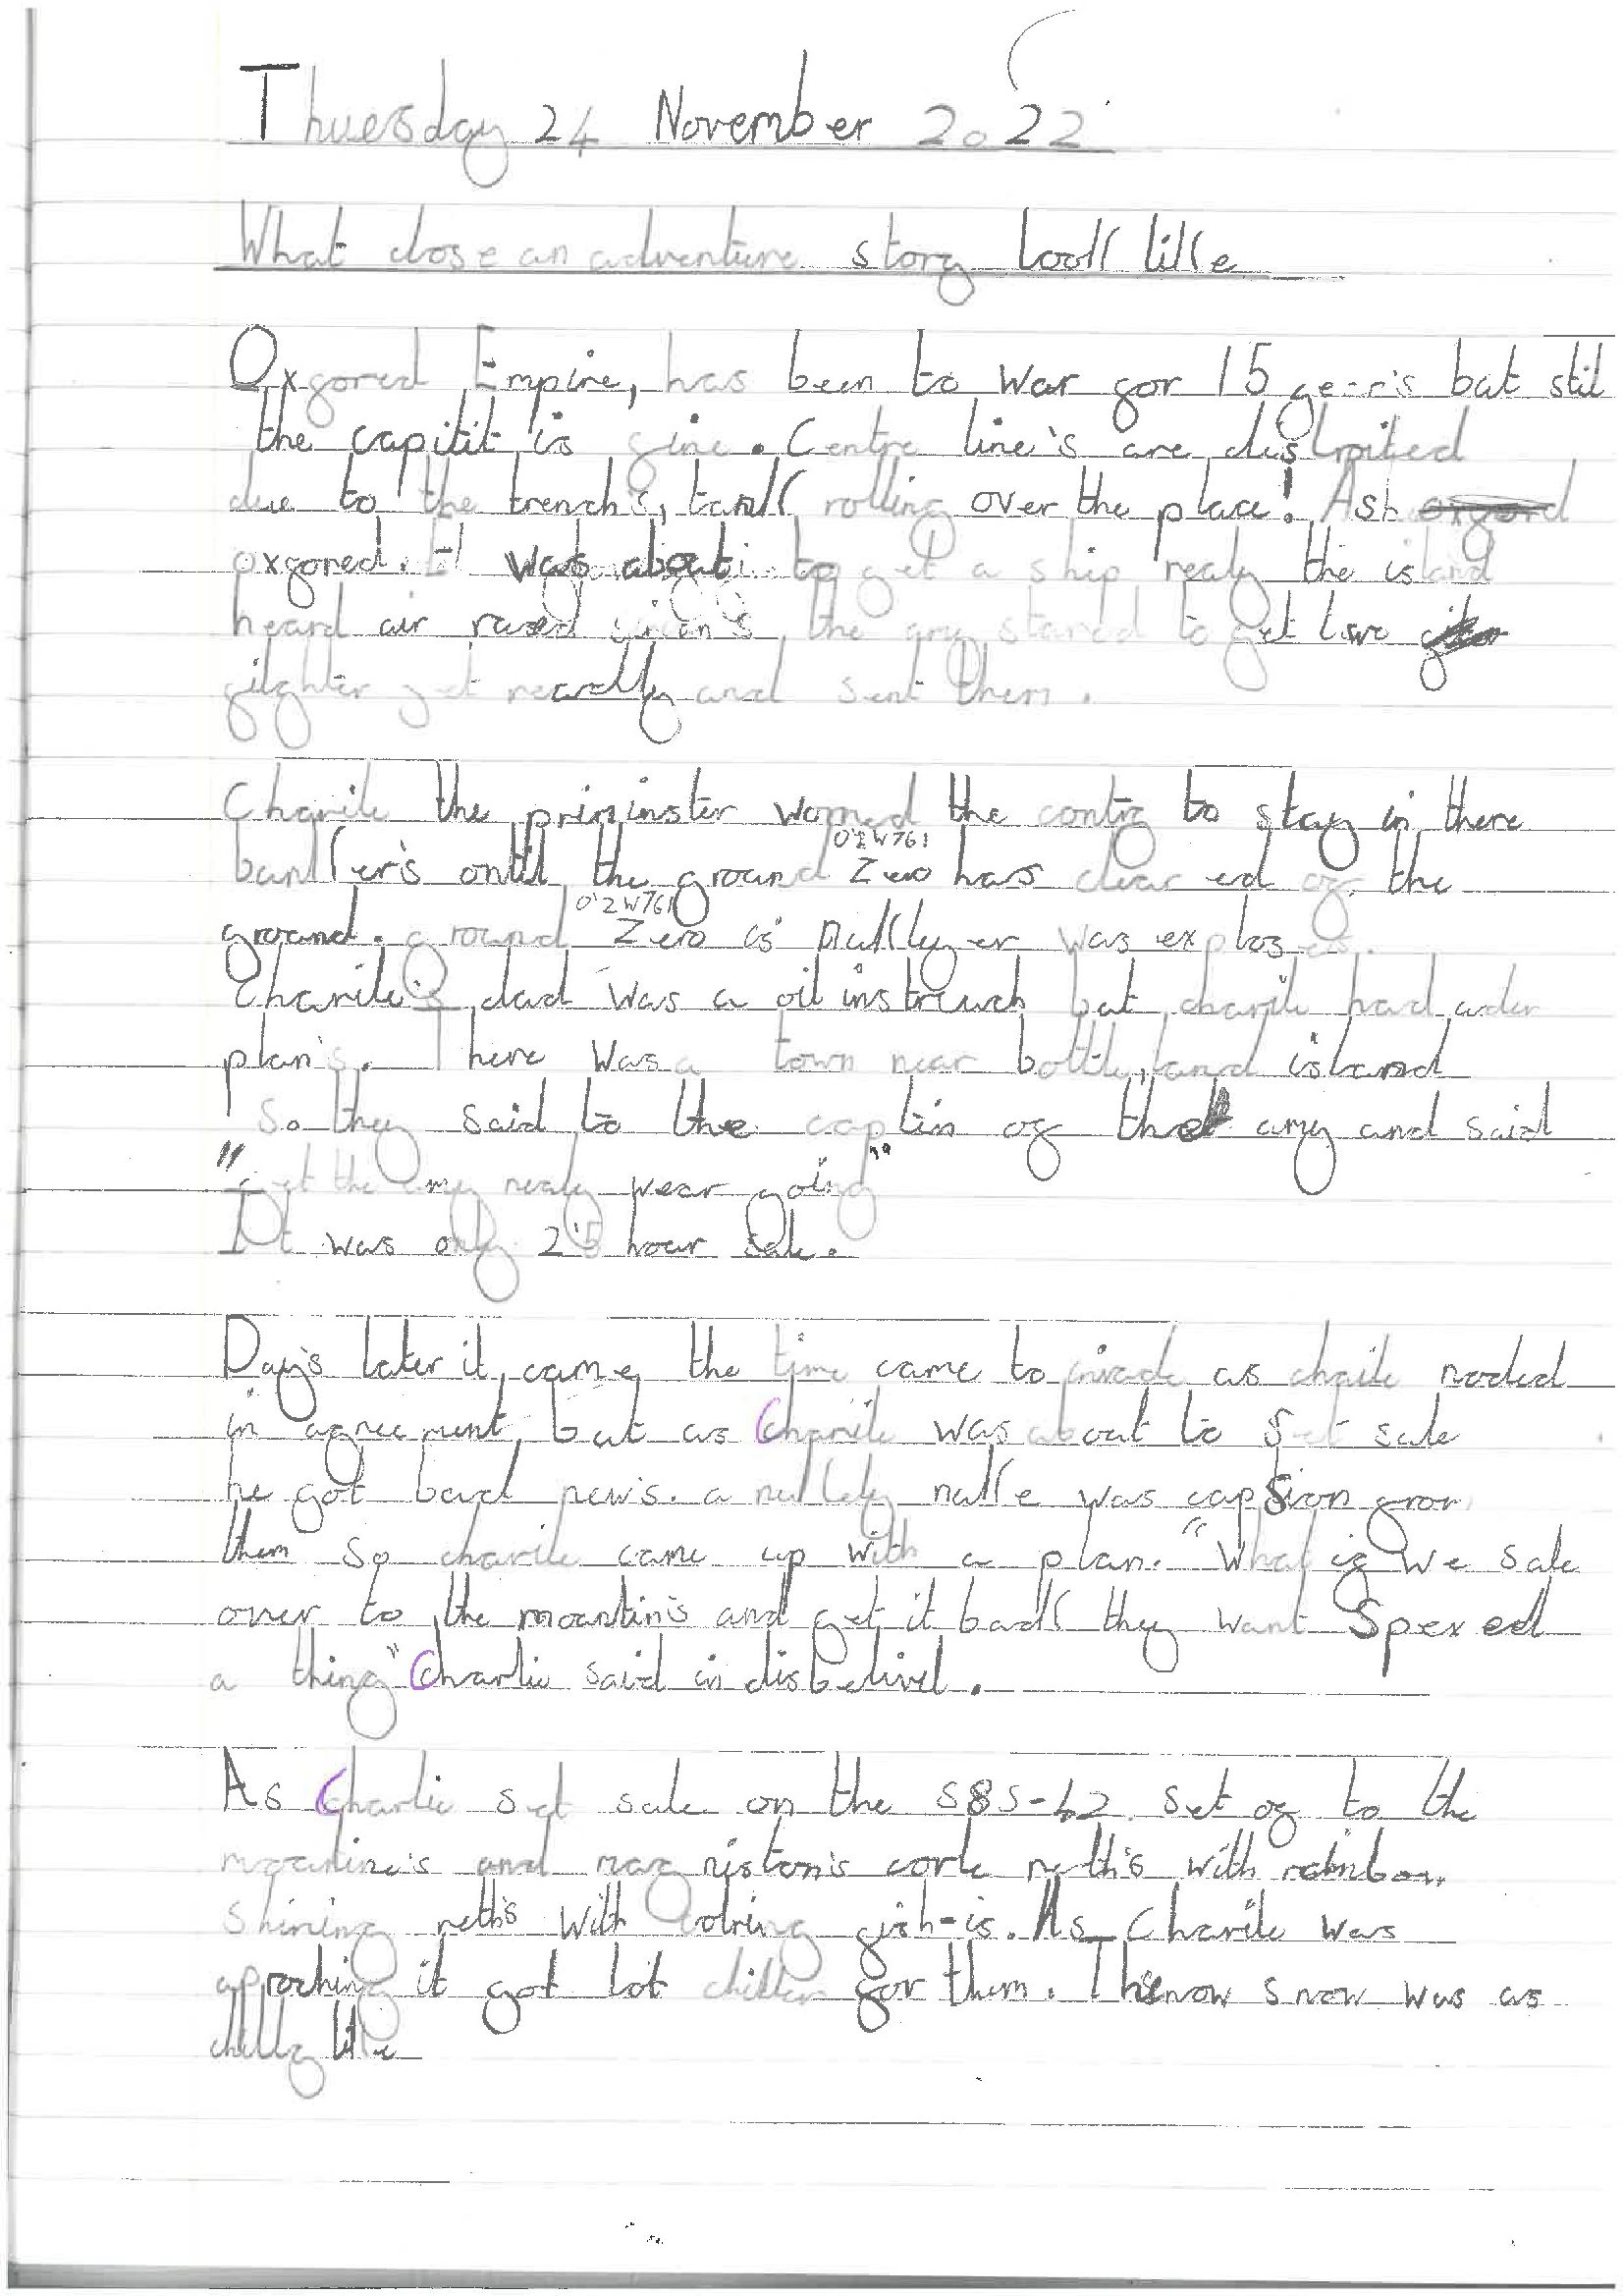 Thuesday 24 November 2022
What dose an adventure story look like
Oxfored Empire, has been to war for 15 year's bat stil
the capitit is fine. Centre line's are distroited
due to the trench's, tank rolling over the place! Ash
oxfored. was about to get a ship realy the island
heard air raised siren's, the amy stared to get two
fighter get reardly and sent them.
Charile the priminster worned the contry to stay in there
bunker's ontil the ground Zero has clear ed of the
O'2W761
ground. ground Zero is was
O'2W761
Charile's dad was a oil instruch but charile had uder
plan's. There was a town near bottle, and island
So they said to the captin of the amy and said
"get the amy realy wear going"
It was only 2'5 hour sale.
Day's later it came the time came to invade as chaile noded
in agreement, but as Charile was about to set sale
he got bad new's. a nuke was from
them so charile came up with a plan. "What if we sale
over to the moantin's and get it back they want Spexed
a thing" Charlie said in disbelivel.
As Charlie set sale on the S8S-62 set of to the
and with
shining with fish-is. As Charile was
aproching it got lot chiller for them. The snow was as
chilly like